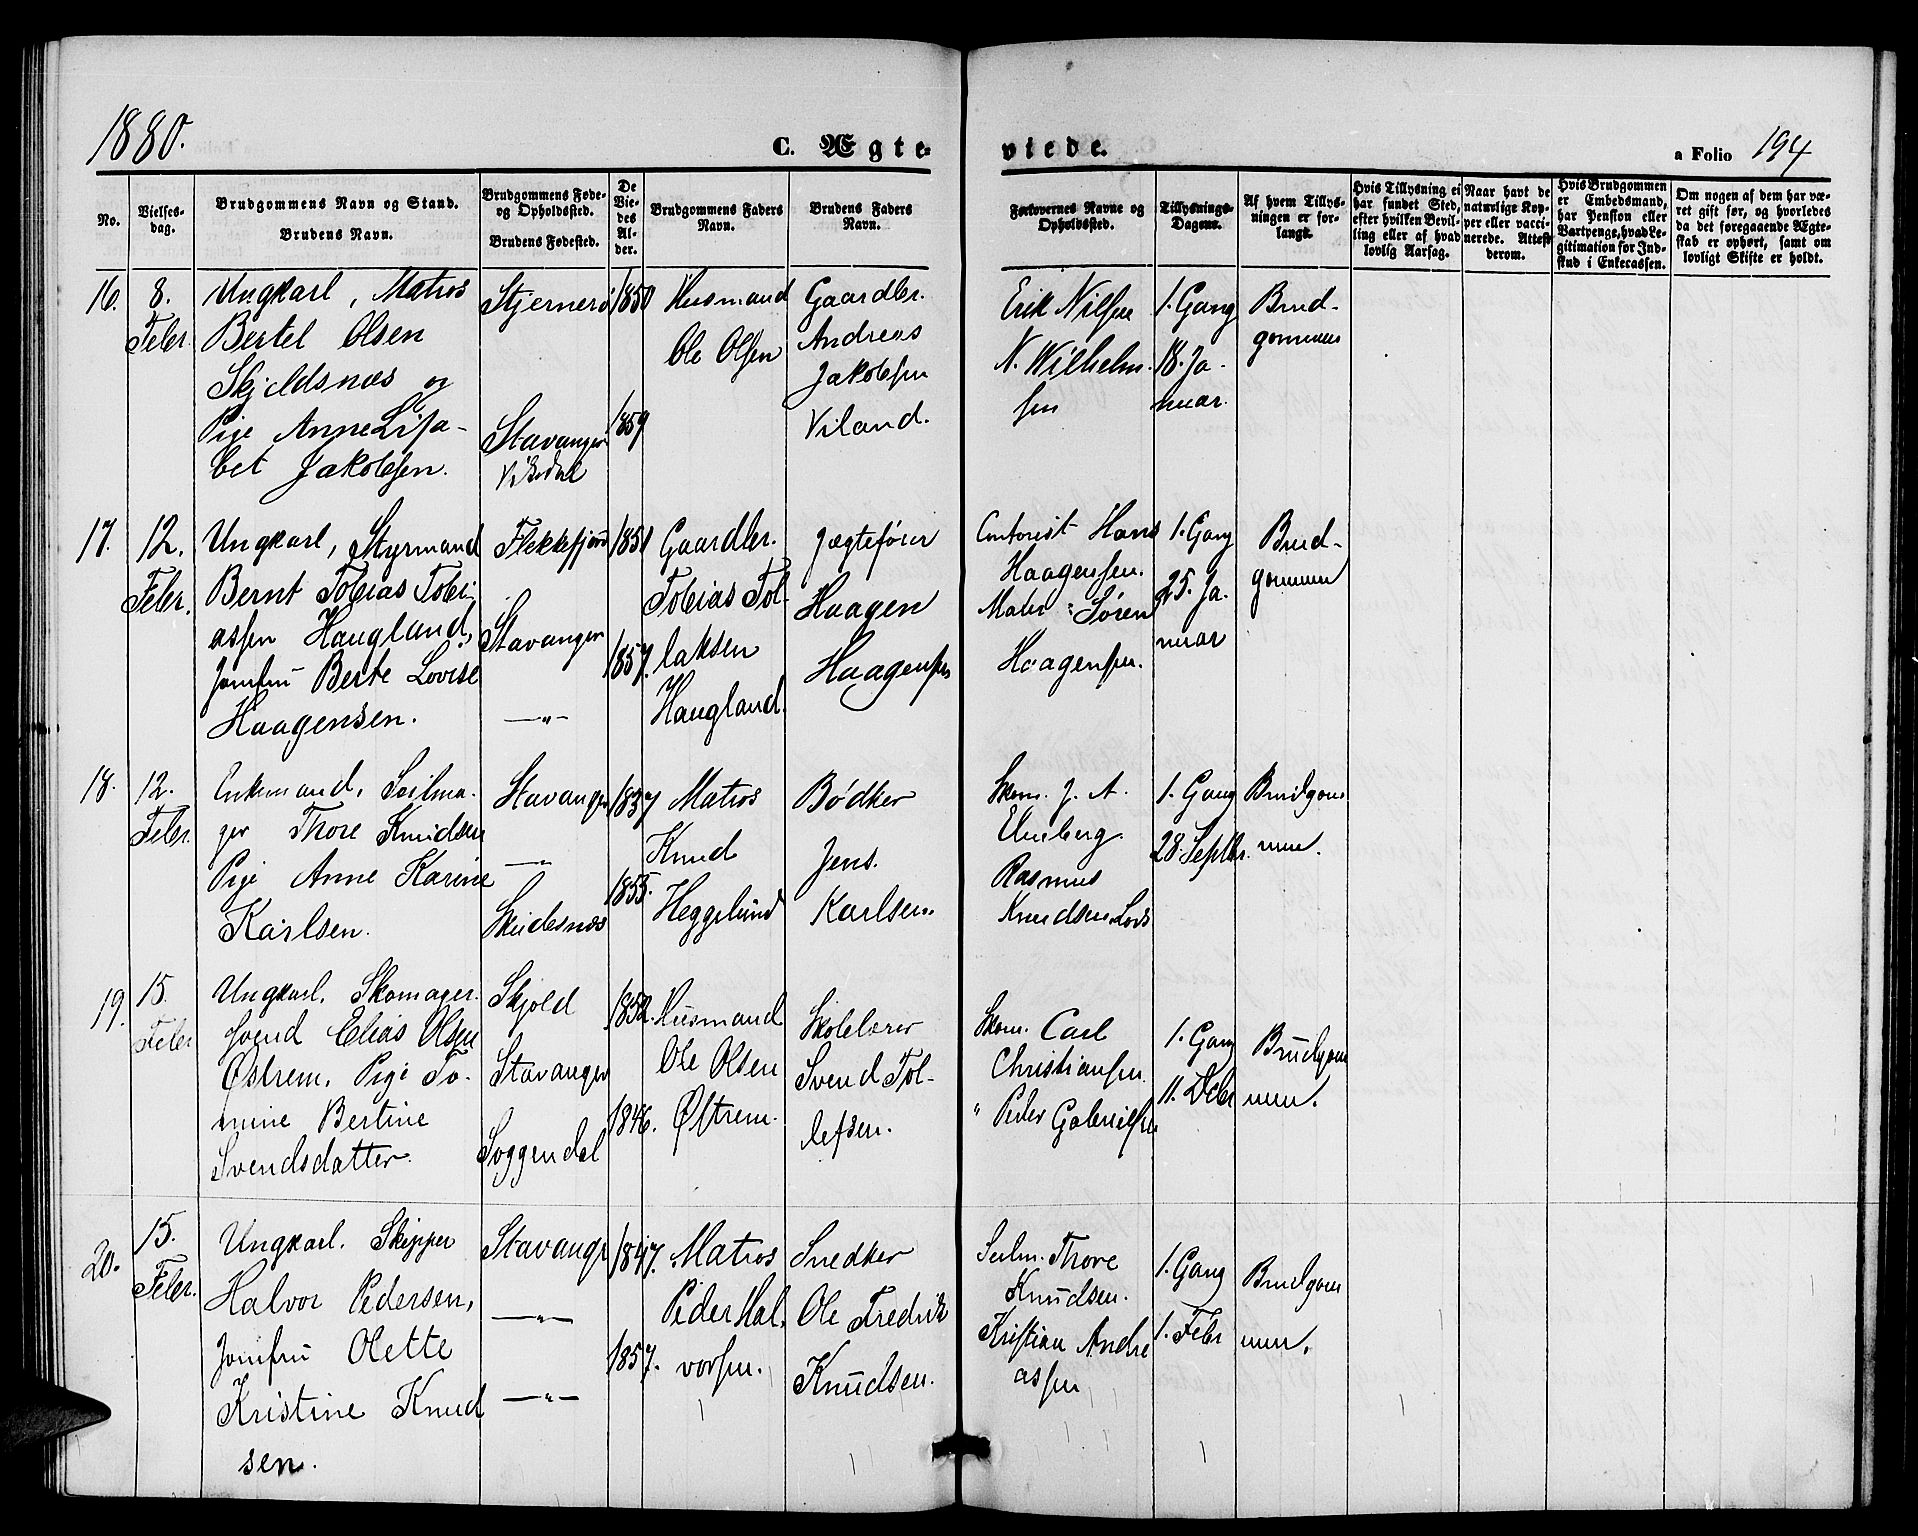 1880.
C. Ægte-
viede.
a Folio 194
No.
Vielses-
dag.
Brudgommens Navn og Stand.
Brudens Navn.
Brudgommens Føde-
og Opholdssted.
Brudens Fødested.
De
Vie-
des
Al-
der.
Brudgommens Faders
Navn.
Brudens Faders
Navn.
Forlovernes Navne og
Opholdssted.
Tillysnings-
Dagene.
Af hvem Tillys-
ningen er for-
langt.
Hvis Tillysning ei
har fundet Sted,
efter hvilken Bevil-
ling eller af hvad
lovlig Aarsag.
Naar havt de
naturlige Kop-
per eller vacci-
nerede. Attest
derom.
Hvis Brudgommen
er Embedsmand,
har Pension eller
Vartpenge, hvad Le-
gitimation for Ind-
skud i Enkecassen.
Om nogen af dem har væ-
ret gift før, og hvorledes
da det foregaaende Ægte-
skab er ophørt, samt om
lovligt Skifte er holdt.
16.
8.
Febr.
Ungkarl, Matros
Bertel Olsen
Skjeldsnæs og
Pige Anne Lisa-
bet Jakobsen.
Stjernerø
Stavanger
Vikedal
1850
1859
Husmand
Ole Olsen
Gaardbr.
Andreas
Jakobsen
Viland.
Erik Nilsen
N. Wilhelm-
sen
1. Gang
18. Ja-
nuar.
Brud-
gommen
17.
12.
Febr.
Ungkarl, Styrmand
Bernt Tobias Tobi-
assen Haugland,
Jomfru Berte Lovise
Haagensen.
Flekkefjord
Stavanger
—"—
1851
1857.
Gaardbr.
Tobias Tol-
laksen
Haugland.
Jægtefører
Haagen
Haagensen
Contorist Hans
Haagensen.
Maler Søren
Haagensen.
1. Gang
25. Ja-
nuar
Brud-
gommen
18.
12.
Febr.
Enkemand, Seilma-
ger Thore Knudsen
Pige Anne Karine
Karlsen.
Stavanger
—"—
Skudesnæs
1837
1855.
Matros
Knud
Heggelund
Bødker
Jens.
Karlsen.
Skom. J. A.
Rasmus
Knudsen Lods
1. Gang
28. Septbr.
Brudgom
men.
19.
15.
Febr
Ungkarl. Skomager.
Svend Elias Olsen
Østrem, Pige To-
mine Bertine
Svendsdatter.
Skjold
Stavanger
Soggendal
1852.
1846.
Husmand
Ole Olsen
Østrem.
Skolelærer
Svend Tol-
lefsen.
Skom. Carl
Christiansen
" Peder Gabrielsen
1. Gang
11. Debr
Brudgom
men.
20.
15.
Febr.
Ungkarl. Skipper
Halvor Pedersen,
Jomfru Olette
Kristine Knud
sen.
Stavanger
—"—
—"—
1847.
1857.
Matros
Peder Hal-
vorsen.
Snedker
Ole Fredrik
Knudsen.
Seilm. Thore
Knudsen.
Kristian Andre
assen
1. Gang
1. Febr
Brudgom
men.